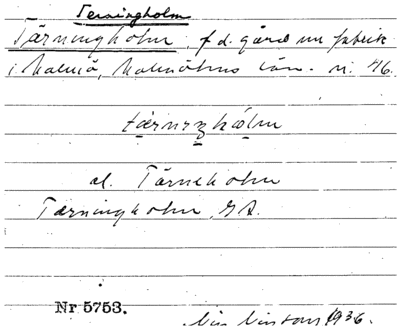 Terningholm
Tärningholm, f d. gård nu fabrik
i Malmö, Malmöhus län. n: 46.
tä̤rnıŋhòlm
el. Tärneholm
Tærningholm, GA.
Nr 5753.
1936.